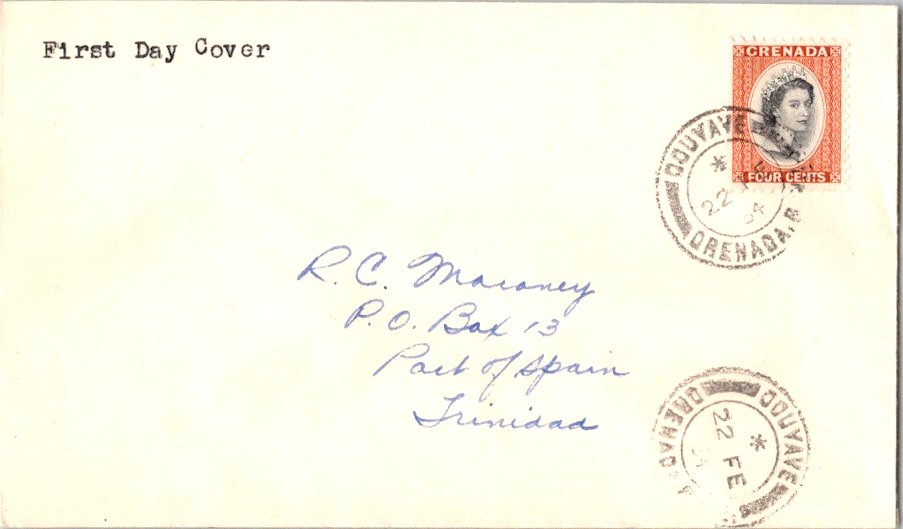 First Day Cover
GRENADA
FOUR CENTS
GOUYAVE
*
22
54
GRENADA. B
R. C. Maroney
P.O. Box 13
Port of Spain
Trinidad
GOUYAVE
*
22 FE